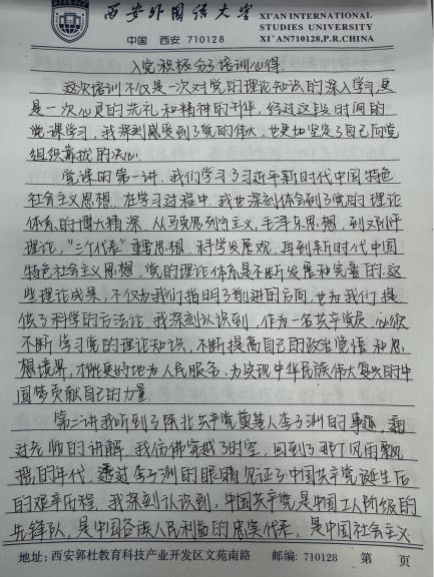 西安外国语大学
XI'AN INTERNATIONAL
STUDIES UNIVERSITY
中国 西安 710128
XI'AN710128,P.R.CHINA
入党积极分子培训心得
这次培训不仅是一次对党的理论知识的深入学习,更
是一次心灵的洗礼和精神的升华,经过这段时间的
党课学习,我深刻感受到了党的伟大,也更加坚定了自己向党
组织靠拢的决心.
党课的第一讲,我们学习了习近平新时代中国特色
社会主义思想,在学习过程中,我也深刻体会到了党的理论
体系的博大精深,从马克思列宁主义,毛泽东思想,到邓小平
理论,"三个代表"重要思想,科学发展观,再到新时代中国
特色社会主义思想,党的理论体系是不断发展和完善的.这
些理论成果,不仅为我们指明了前进的方向,也为我们提
供了科学的方法论,我深刻认识到,作为一名共产党员,必须
不断学习党的理论知识,不断提高自己的政治觉悟和思
想境界,才能更好地为人民服务,为实现中华民族伟大复兴的中
国梦贡献自己的力量
第二讲我听到了陕北共产党奠基人李子洲的事迹,
老师的讲解,我仿佛穿越了时空,回到了那个风雨飘
摇的年代,透过李子洲的眼睛见证了中国共产党诞生后
的艰辛历程,我深刻认识到,中国共产党是中国工人阶级的
先锋队,是中国各族人民利益的忠实代表,是中国社会主义
地址:西安郭杜教育科技产业开发区文苑南路 邮编:710128 第 页